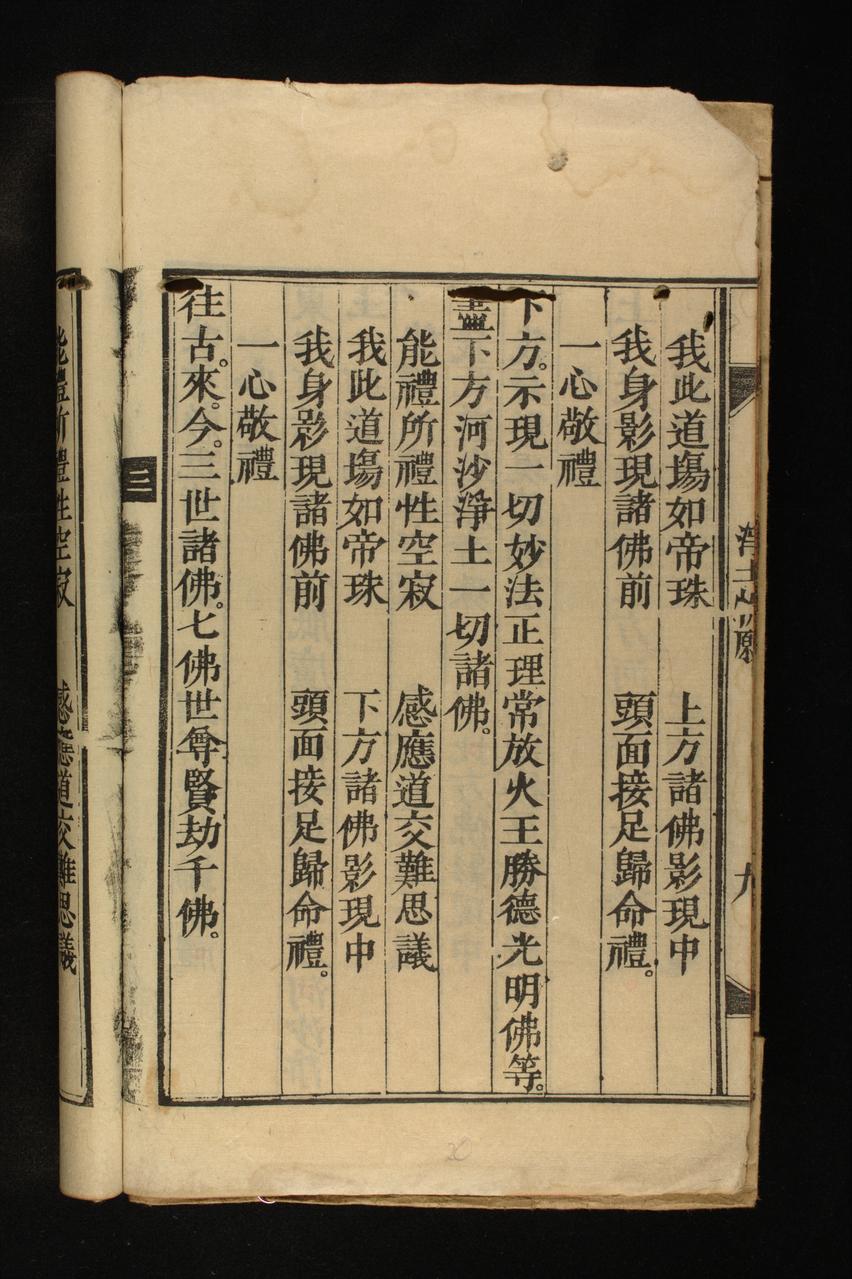 淨土
九
我此道塲如帝珠　上方諸佛影現中
我身影現諸佛前　頭面接足歸命禮。
一心敬禮
下方。示現一切妙法正理常放火王勝德光明佛等。
盡下方河沙淨土一切諸佛。
能禮所禮性空寂　感應道交難思議
我此道塲如帝珠　下方諸佛影現中
我身影現諸佛前　頭面接足歸命禮。
一心敬禮
往古。來。今。三世諸佛。七佛世尊賢劫千佛。
三
能禮所禮性空寂　感應道交難思議
20